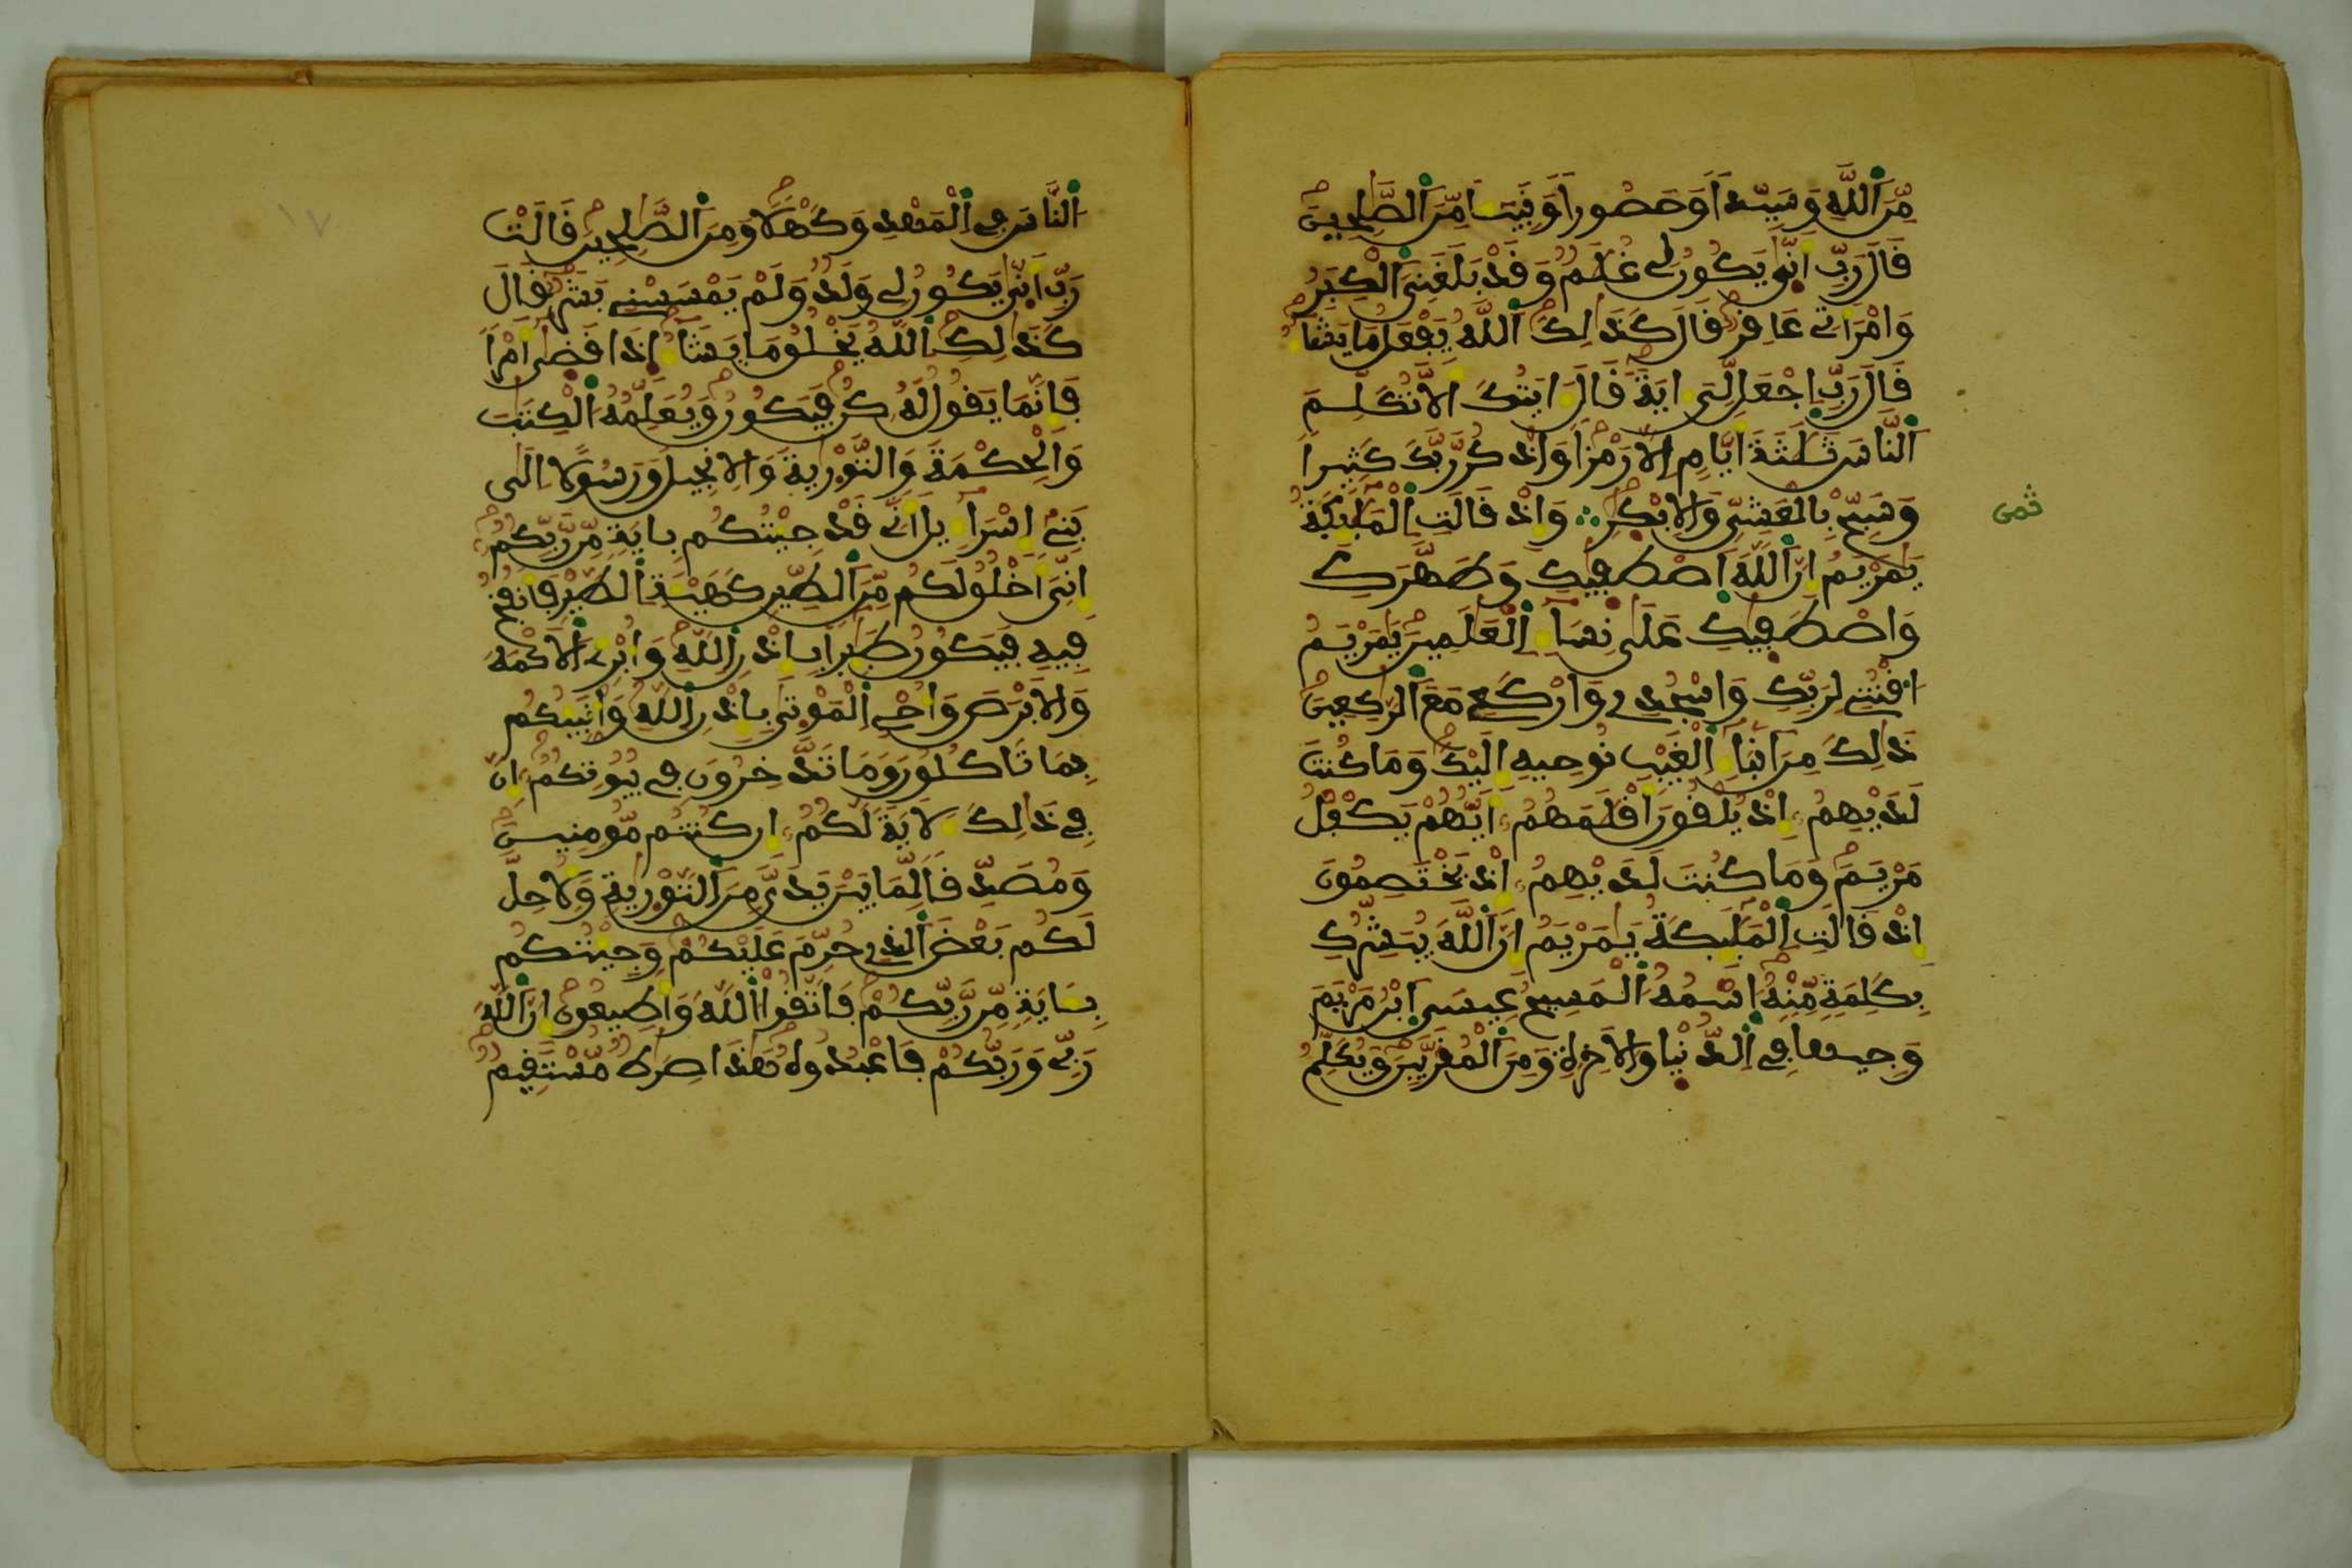 مِّنَ اَللَّهِ وَسَيِّداً وَحَصُوراً وَنَبِيـاً مِّنَ اَلصَّٰلِحِينَ
قَالَ رَبِّ أَنّٰى يَكُونُ لِى غُلَٰمٌ وَقَدْ بَلَغَنِىَ اَلْكِبَرُ
وَامْرَأَتِى عَاقِرٌ قَالَ كَذَٰلِكَ اَللَّهُ يَفْعَلُ مَا يَشَاءُ
قَالَ رَبِّ اِجْعَل لِّىَ ءَايَةً قَالَ ءَايَتُكَ أَلَّا تُكَلِّمَ
اَلنَّاسَ ثَلَٰثَةَ أَيَّامٍ إِلَّا رَمْزاً وَاذْكُر رَّبَّكَ كَثِيراً
وَسَبِّحْ بِالْعَشِىِّ وَالْإِبْكَٰرِ ∴ وَإِذْ قَالَتِ اِلْمَلَٰٓئِكَةُ
ثمن
يَٰمَرْيَمُ إِنَّ اَللَّهَ اَصْطَفَيٰكِ وَطَهَّرَكِ
وَاصْطَفَيٰكِ عَلَىٰ نِسَاءِ اِلْعَٰلَمِينَ يَٰمَرْيَمُ
اُقْنُتِى لِرَبِّكِ وَاسْجُدِى وَارْكَعِى مَعَ اَلرَّٰكِعِينَ
ذَٰلِكَ مِنْ أَنۢبَاءِ اِلْغَيْبِ نُوحِيهِ إِلَيْكَ وَمَا كُنتَ
لَدَيْهِمُ إِذْ يُلْقُونَ أَقْلَٰمَهُمُ أَيُّهُمْ يَكْفُلُ
مَرْيَمَ وَمَا كُنتَ لَدَيْهِمُ إِذْ يَخْتَصِمُونَ
إِذْ قَالَتِ اِلْمَلَٰٓئِكَةُ يَٰمَرْيَمُ إِنَّ اَللَّهَ يُبَشِّرُكِ
بِكَلِمَةٍ مِّنْهُ اُسْمُهُ اُلْمَسِيحُ عِيسَى اَبْنُ مَرْيَمَ
وَجِيهاً فِى اِلدُّنْيَا وَالْأَخِرَةِ وَمِنَ اَلْمُقَرَّبِينَ وَيُكَلِّمُ
١٧
اُلنَّاسَ فِى اِلْمَهْدِ وَكَهْلًا وَمِنَ اَلصَّٰلِحِينَ قَالَتْ
رَبِّ أَنّٰى يَكُونُ لِى وَلَدٌ وَلَمْ يَمْسَسْنِى بَشَرٌ قَالَ
كَذَٰلِكِ اِللَّهُ يَخْلُقُ مَا يَشَاءُ إِذَا قَضَىٰ أَمْراً
فَإِنَّمَا يَقُولُ لَهُ كُن فَيَكُونُ وَيُعَلِّمُهُ اُلْكِتَٰبَ
وَالْحِكْمَةَ وَالتَّوْرَيٰةَ وَالْإِنجِيلَ وَرَسُولًا إِلَىٰ
بَنِى إِسْرَاءِيلَ أَنِّى قَدْ جِئْتُكُم بِـَٔايَةٍ مِّن رَّبِّكُمُ
إِنِّىَ أَخْلُقُ لَكُم مِّنَ اَلطِّينِ كَهَيْـَٔةِ اِلطَّيْرِ فَأَنفُخُ
فِيهِ فَيَكُونُ طَٰٓئِراً بِإِذْنِ اِللَّهِ وَأُبْرِئُ اُلْأَكْمَهَ
وَالْأَبْرَصَ وَأُحْىِ اِلْمَوْتَىٰ بِإِذْنِ اِللَّهِ وَأُنَبِّئُكُم
بِمَا تَاكُلُونَ وَمَا تَدَّخِرُونَ فِى بُيُوتِكُمُ إِنَّ
فِى ذَٰلِكَ لَأَيَةً لَّكُمُ إِن كُنتُم مُّومِنِينَ
وَمُصَدِّقاً لِّمَا بَيْنَ يَدَىَّ مِنَ اَلتَّوْرَيٰةِ وَلِأُحِلَّ
لَكُم بَعْضَ اَلَّذِى حُرِّمَ عَلَيْكُمْ وَجِئْتُكُم
بِـَٔايَةٍ مِّن رَّبِّكُمْ فَاتَّقُوا اُللَّهَ وَأَطِيعُونِ إِنَّ اَللَّهَ
رَبِّى وَرَبُّكُمْ فَاعْبُدُوهُ هَٰذَا صِرَٰطٌ مُّسْتَقِيمٌ